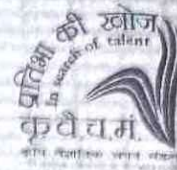 प्रतिभा की खोज
In search of talent
कृ वै च मं.